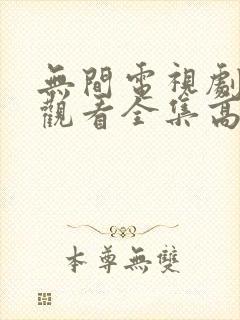 無間電視劇
觀看全集高
本尊無雙